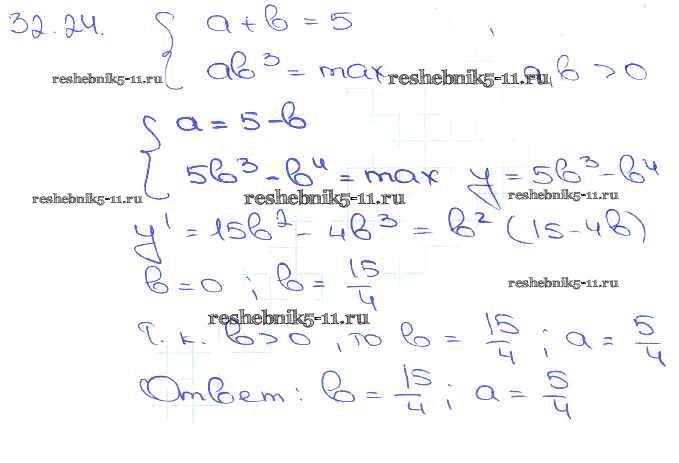 32.24. { a + b = 5
ab³ = max, a,b > 0
reshebnik5-11.ru reshebnik5-11.ru
{ a = 5 - b
5b³ - b⁴ = max y = 5b³ - b⁴
reshebnik5-11.ru reshebnik5-11.ru reshebnik5-11.ru
y' = 15b² - 4b³ = b² (15 - 4b)
b = 0 ; b = 15/4
reshebnik5-11.ru
reshebnik5-11.ru
т.к. b > 0, то b = 15/4 ; a = 5/4
Ответ: b = 15/4 ; a = 5/4